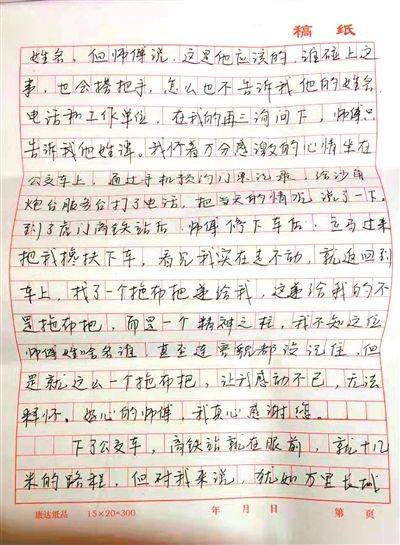 稿 纸
姓名。但师傅说，这是他应该的，谁碰上这
事，也会搭把手，怎么也不告诉我他的姓名，
电话和工作单位，在我的再三询问下，师傅只
告诉我他姓谭。我怀着万分感激的心情坐在
公交车上，通过手机预约门票记录，给沙角
炮台服务台打了电话，把当天的情况说了一下。
到了虎门高铁站后，师傅停下车后，立马过来
把我搀扶下车，看见我实在走不动，就返回到
车上，找了一个拖布把递给我，这递给我的不
是拖布把，而是一个精神之柱，我不知这位
师傅姓啥名谁，甚至连容貌都没记住，但
是就这么一个拖布把，让我感动不已，无法
释怀。好心的师傅，我真心感谢您。
下了公交车，高铁站就在眼前，就十几
米的路程，但对我来说，犹如万里长城
康达纸品 15×20=300 年 月 日 第 页